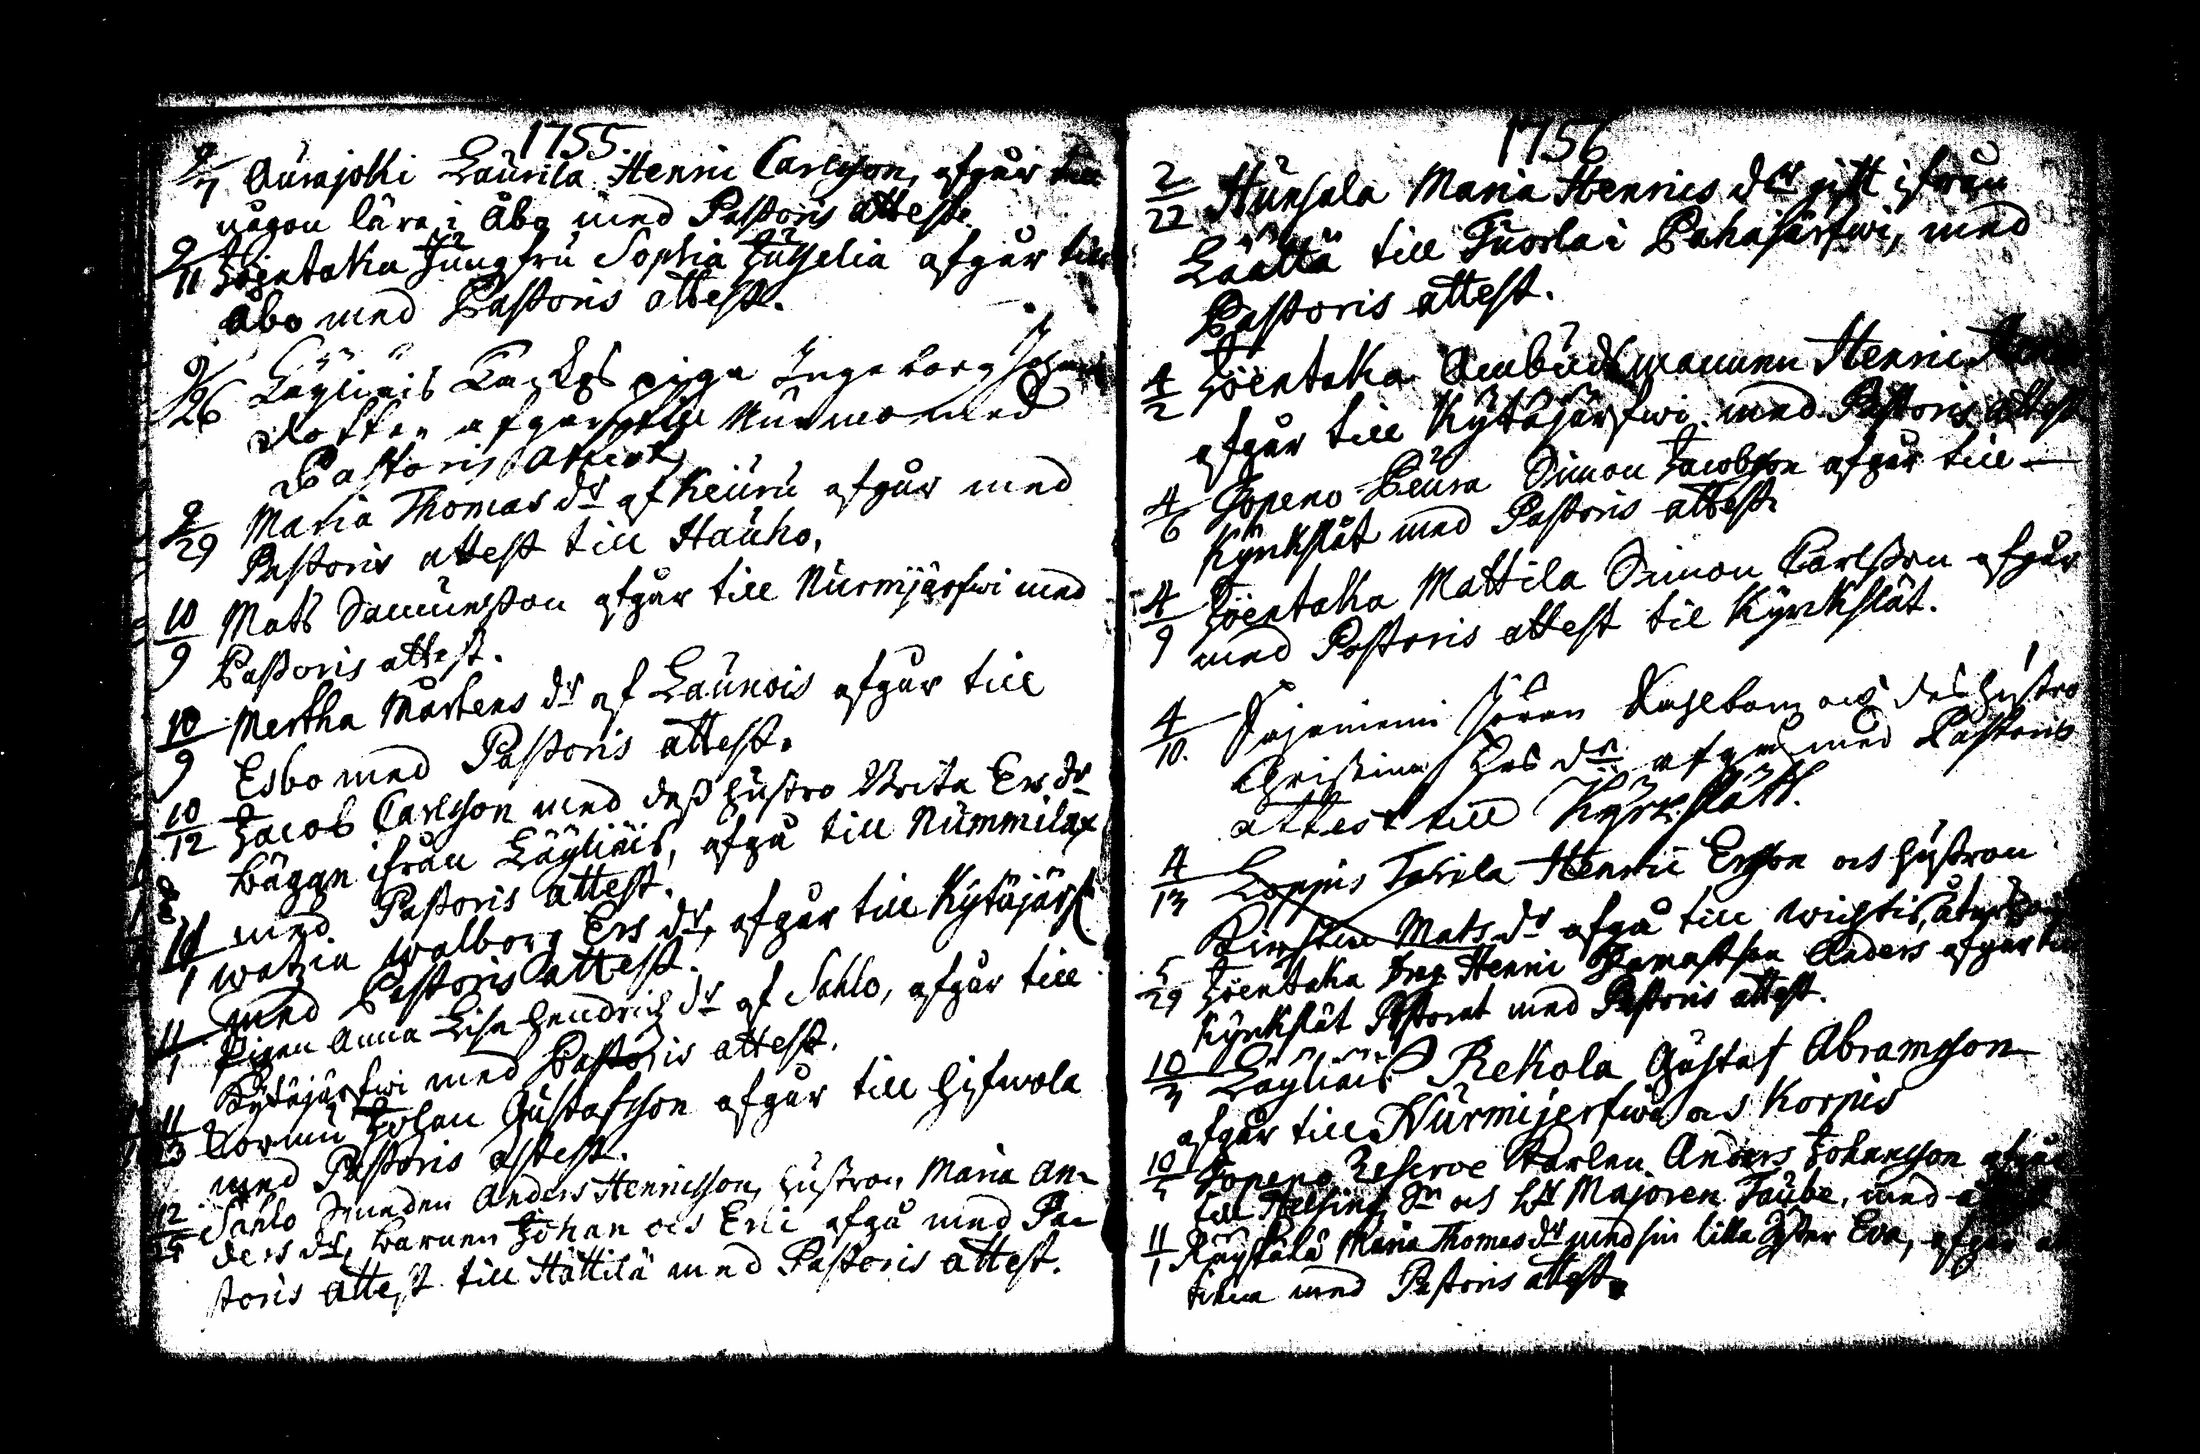 1755.
9/7 Aurajoki Laurila Henric Carlsson, afgår till
någon lära i Åbo med Pastoris attest.
9/11 Höjentaka Jungfru Sophia afgår till
Åbo med Pastoris attest.
9/26 Läyliäis piga Ingeborg
dotter afgår till Nurmo med
Pastoris attest
9/29 Maria Thomas dr af Keuru afgår med
Pastoris attest till Hauho.
10/9 Mats Samuelsson afgår till Nurmijärfwi med
Pastoris attest.
10/9 Mertha Mårtens dr af Launois afgår till
Esbo med Pastoris attest.
10/12 Jacob Carlsson med dess hustro Brita Ers dr
ifrån Läyliäis, afgå till Nummilax
med Pastoris attest.
11/1 Walborg Ers dr, afgår till Kytäjärf
med Pastoris attest.
11/1 Pigan Anna Lisa Hendrichs dr af Sahlo, afgår till
Kytäjärfwi med Pastoris attest.
11/13 Johan Gustafsson afgår till
med Pastoris attest.
12 Sahlo Smeden Anders Henricsson, hustron Maria An-
ders dr, barnen Johan och Eric afgå med Pa-
storis attest till Hattila med Pastoris attest.
1756
2/22 Hunsala Maria Henrics dr gift ifrån
Läättä till Tuorla i Pahajärfwi, med
Pastoris attest.
4/2 Höentaka Ambudsmannen Henric
afgår till Kytäjärfwi med Pastoris attest
4/6 Topeno Peura Simon Jacobsson afgår till
Kyrkslät med Pastoris attest.
4/9 Höentaka Mattila Simon Carlsson afgår
med Pastoris attest til Kyrkslät.
4/10. Sajaniemi Jöran och des hustro
Christina dr afgå med Pastoris
attest till Kyrkslätt.
4/13 Loppis Henric Ersson och hustron
Kirstin Mats dr afgå till Wichtis,
5/29 Höentaka Henric Anders afgår till
Kyrkslät Pastorat med Pastoris attest.
10 Läyliäis Rekola Gustaf Abramsson
afgår till Nurmijerfwi och Korpis
10 Topeno Reserve Karlen Anders Johansson afgår
till Helsing och hr Majoren Taube, med
11/1 Räyskälä Maria Thomas dr med sin lilla Syster Eva, afgår
med Pastoris attest.